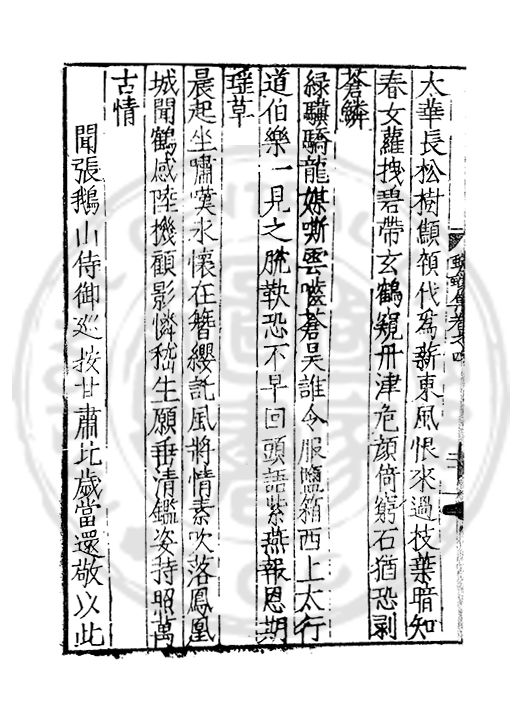 太華長松樹顦顇代爲薪東風恨來過枝葉暗知
春女蘿拽碧帶玄鶴窺丹津危顔倚窮石猶恐剥
蒼鱗
緑驥騎龍媒嘶雲嚙蒼昊誰令服鹽箱西上太行
道伯樂一見之脱軟恐不早回頭語紫燕報恩期
瑶草
晨起坐嘯漢水懷在簪纓託風將情素吹落鳳凰
城聞鶴感陸機顧影憐嵇生願垂清鑑姿持照萬
古情
聞張鵝山侍御巡按甘肅比歲當還敬以此